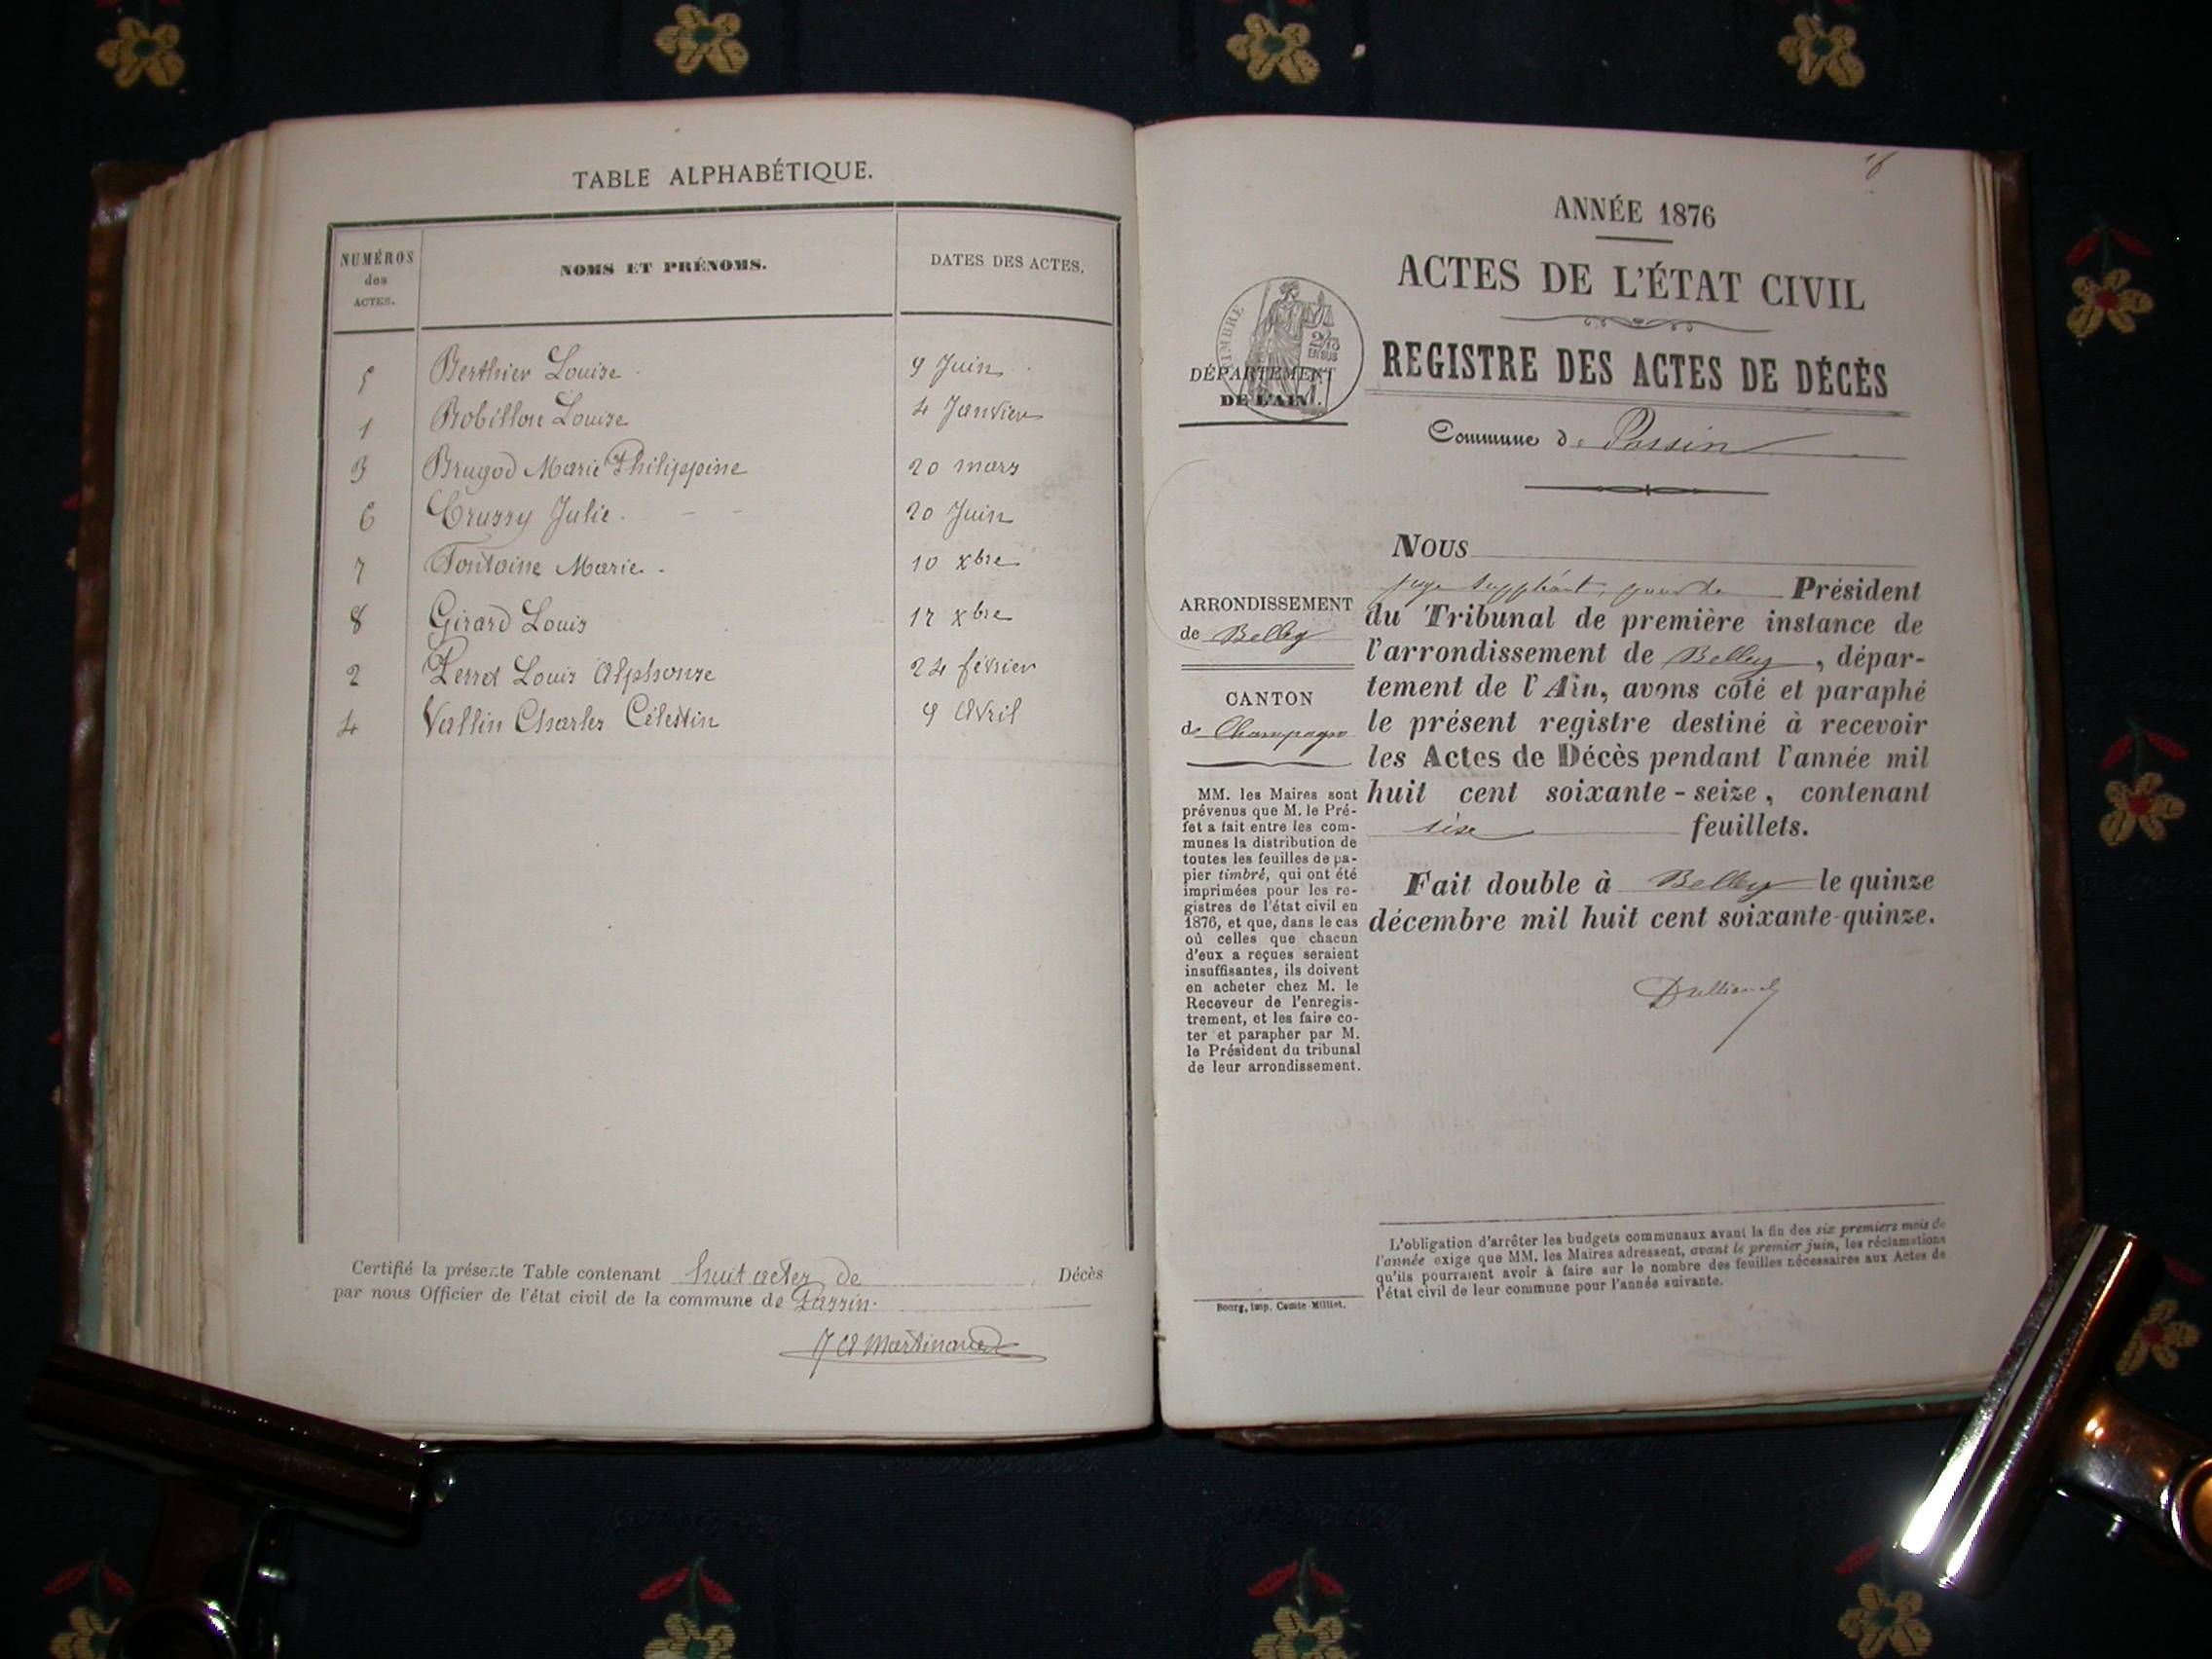 TABLE ALPHABÉTIQUE.
NUMÉROS
des
ACTES.
NOMS ET PRÉNOMS.
DATES DES ACTES.
5 Berthier Louise 9 Juin
1 Bobillon Louise 4 Janvier
3 Brugod Marie Philippine 20 mars
6 Crussy Julie 20 Juin
7 Fontaine Marie 10 xbre
8 Girard Louis 17 xbre
2 Perret Louis Alphonse 24 février
4 Vallin Charles Célestin 9 Avril
Certifié la présente Table contenant huit actes de Décès
par nous Officier de l'état civil de la commune de Passin.
J A Martinand
ANNÉE 1876
ACTES DE L'ÉTAT CIVIL
TIMBRE
2/10
EN SUS
DÉPARTEMENT
DE L'AIN.
REGISTRE DES ACTES DE DÉCÈS
Commune de Passin
NOUS
juge suppléant, pour le Président
du Tribunal de première instance de
l'arrondissement de Belley, dépar-
tement de l'Ain, avons coté et paraphé
le présent registre destiné à recevoir
les Actes de Décès pendant l'année mil
huit cent soixante-seize, contenant
six feuillets.
Fait double à Belley le quinze
décembre mil huit cent soixante-quinze.
ARRONDISSEMENT
de Belley
CANTON
de Champagne
MM. les Maires sont
prévenus que M. le Pré-
fet a fait entre les com-
munes la distribution de
toutes les feuilles de pa-
pier timbré, qui ont été
imprimées pour les re-
gistres de l'état civil en
1876, et que, dans le cas
où celles que chacun
d'eux a reçues seraient
insuffisantes, ils doivent
en acheter chez M. le
Receveur de l'enregis-
trement, et les faire co-
ter et parapher par M.
le Président du tribunal
de leur arrondissement.
L'obligation d'arrêter les budgets communaux avant la fin des six premiers mois de
l'année exige que MM. les Maires adressent, avant le premier juin, les réclamations
qu'ils pourraient avoir à faire sur le nombre des feuilles nécessaires aux Actes de
l'état civil de leur commune pour l'année suivante.
Bourg, imp. Comte-Milliet.